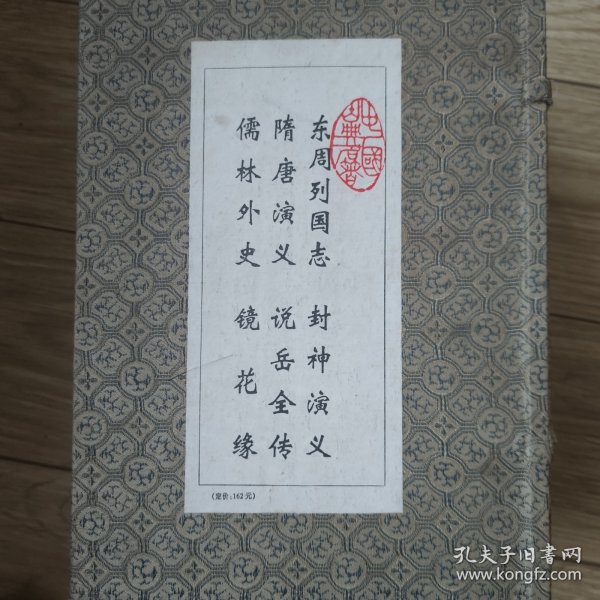 东周列国志 封神演义
隋唐演义 说岳全传
儒林外史 镜花缘
中國古典名著
(定价:162元)
孔夫子旧书网
www.kongfz.com